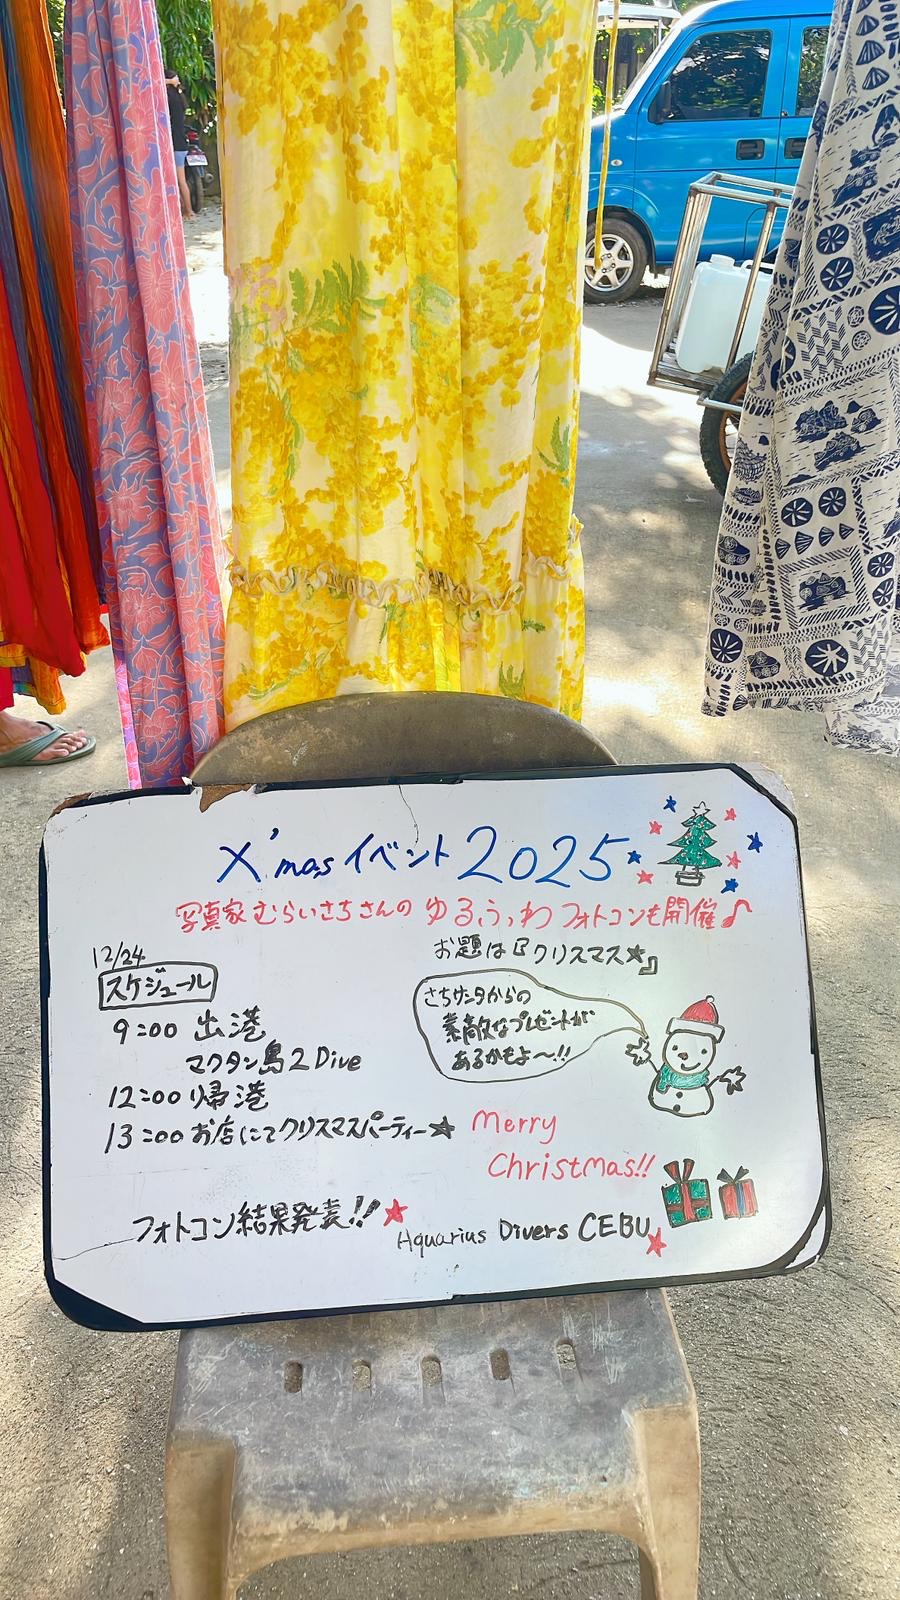 X'mas イベント 2025
写真家むらいさちさんの ゆるふわ フォトコンも開催♪
お題は『クリスマス★』
12/24
スケジュール
9:00 出港
マクタン島 2 Dive
12:00 帰港
13:00 お店にてクリスマスパーティー★
フォトコン結果発表!!★
さちサンタからの
素敵なプレゼントが
あるかもよ〜!!
Merry
Christmas!!
Aquarius Divers CEBU★